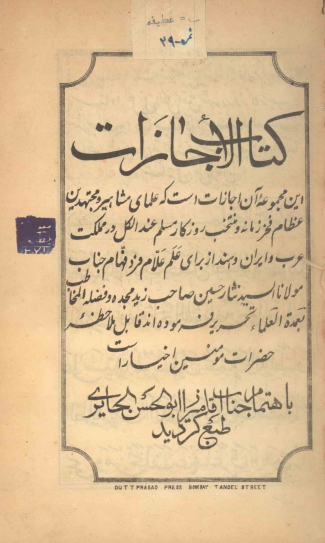 ب = عطیفه
نمره ۲۹
کتاب الاجازات
این مجموعهٔ آن اجازات است که علمای مشاهیر و مجتهدین
عظام فخر زمانه و منتخب روزکار مسلم عند الکل در مملکت
عرب و ایران و هند از برای عَلَم علّام فرد فهّام جناب
مولانا السید نثار حسین صاحب زید مجده و فضله المخاطب
بعمدة العلماء تحریر فرموده اند قابل ملاحظهٔ
حضرات مومنین اخیار است
باهتمام جناب اقا میرزا ابو الحسن الحایری
طبع کردید
DUTTPRASAD PRESS BOMBAY TANDEL STREET